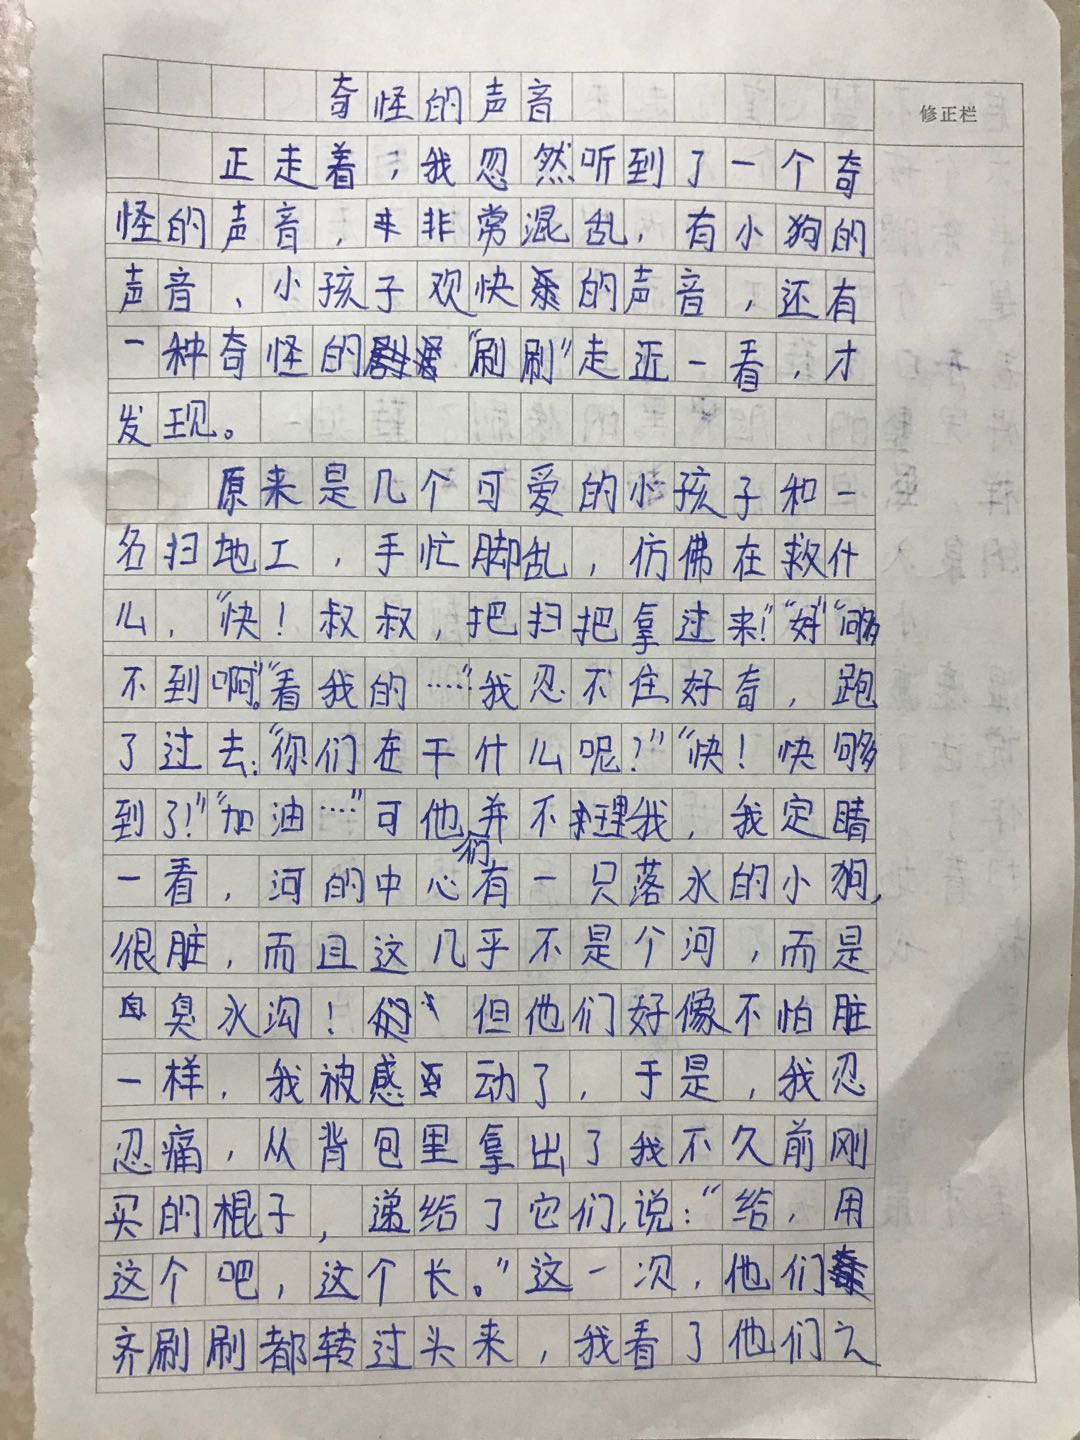 奇怪的声音
修正栏
正走着，我忽然听到了一个奇
怪的声音，非常混乱，有小狗的
声音、小孩子欢快的声音，还有
一种奇怪的“刷刷”走近一看，才
发现。
原来是几个可爱的小孩子和一
名扫地工，手忙脚乱，仿佛在救什
么，“快！叔叔，把扫把拿过来！”“好”“够
不到啊。”“看我的……”我忍不住好奇，跑
了过去：“你们在干什么呢？”“快！快够
到了！”“加油……”可他们并不理我，我定睛
一看，河的中心有一只落水的小狗，
很脏，而且这几乎不是个河，而是
臭水沟！但他们好像不怕脏
一样，我被感动了，于是，我忍
忍痛，从背包里拿出了我不久前刚
买的棍子，递给了它们，说：“给，用
这个吧，这个长。”这一次，他们
齐刷刷都转过头来，我看了他们么